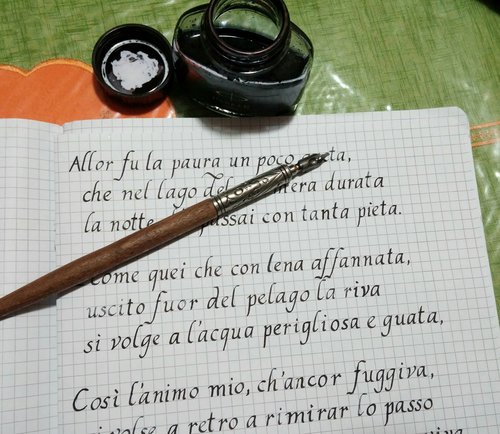 Allor fu la paura un poco
che nel lago del durata
la notte passai con tanta pieta.
come quei che con lena affannata,
uscito fuor del pelago la riva
si volge a l'acqua perigliosa e guata,
Così l'animo mio, ch'ancor fuggiva,
volse a retro a rimirar lo passo